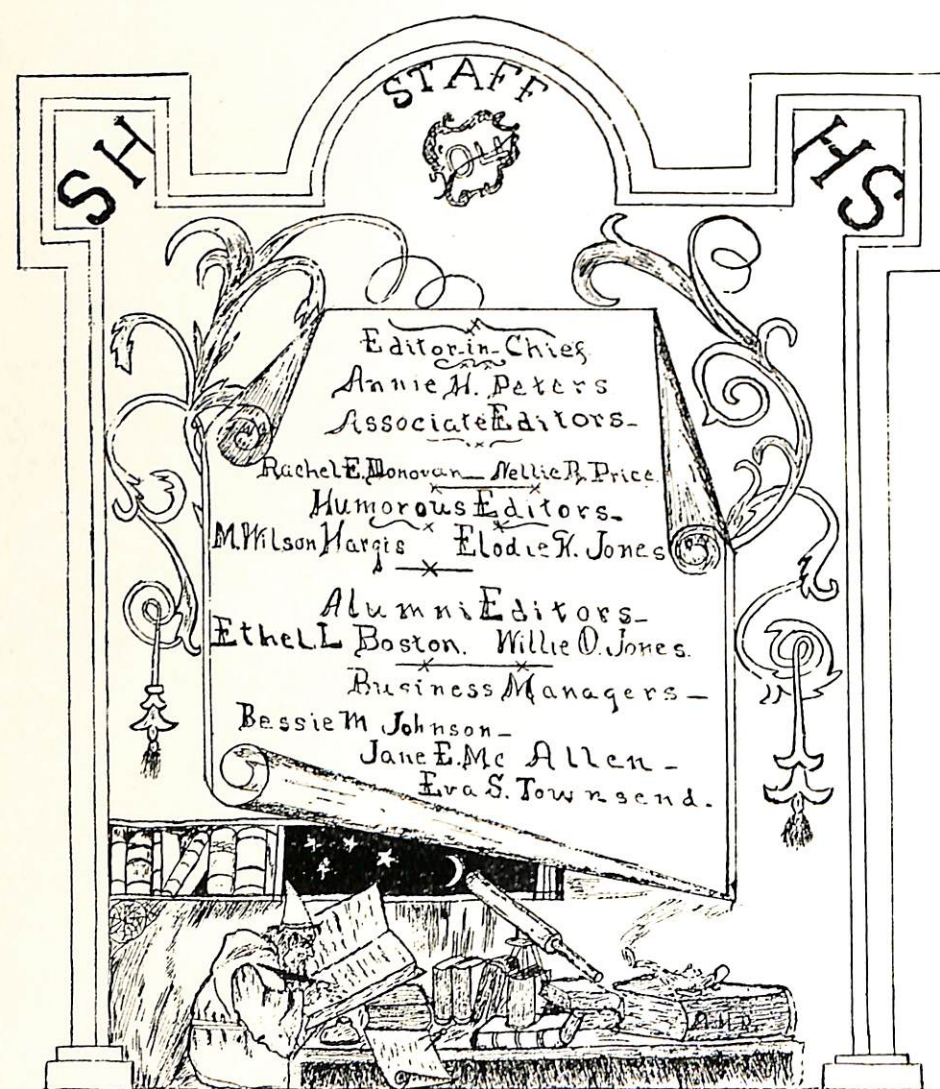 STAFF
SH
HS
Editor-in-Chief
Annie H. Peters
Associate Editors-
Rachel E. Donovan - Nellie R. Price
Humorous Editors-
M. Wilson Hargis Elodie H. Jones
Alumni Editors-
Ethel L Boston. Willie O. Jones.
Business Managers-
Bessie M Johnson-
Jane E. Mc Allen-
Eva S. Townsend.